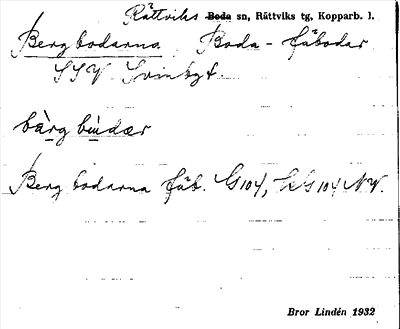 Rättviks Boda sn, Rättviks tg, Kopparb. l.
Bergbodarna Boda - fäbodar
SSV
bàrg bùdær
Bergbodarna fäb. G 104, NV.
Bror Lindén 1932